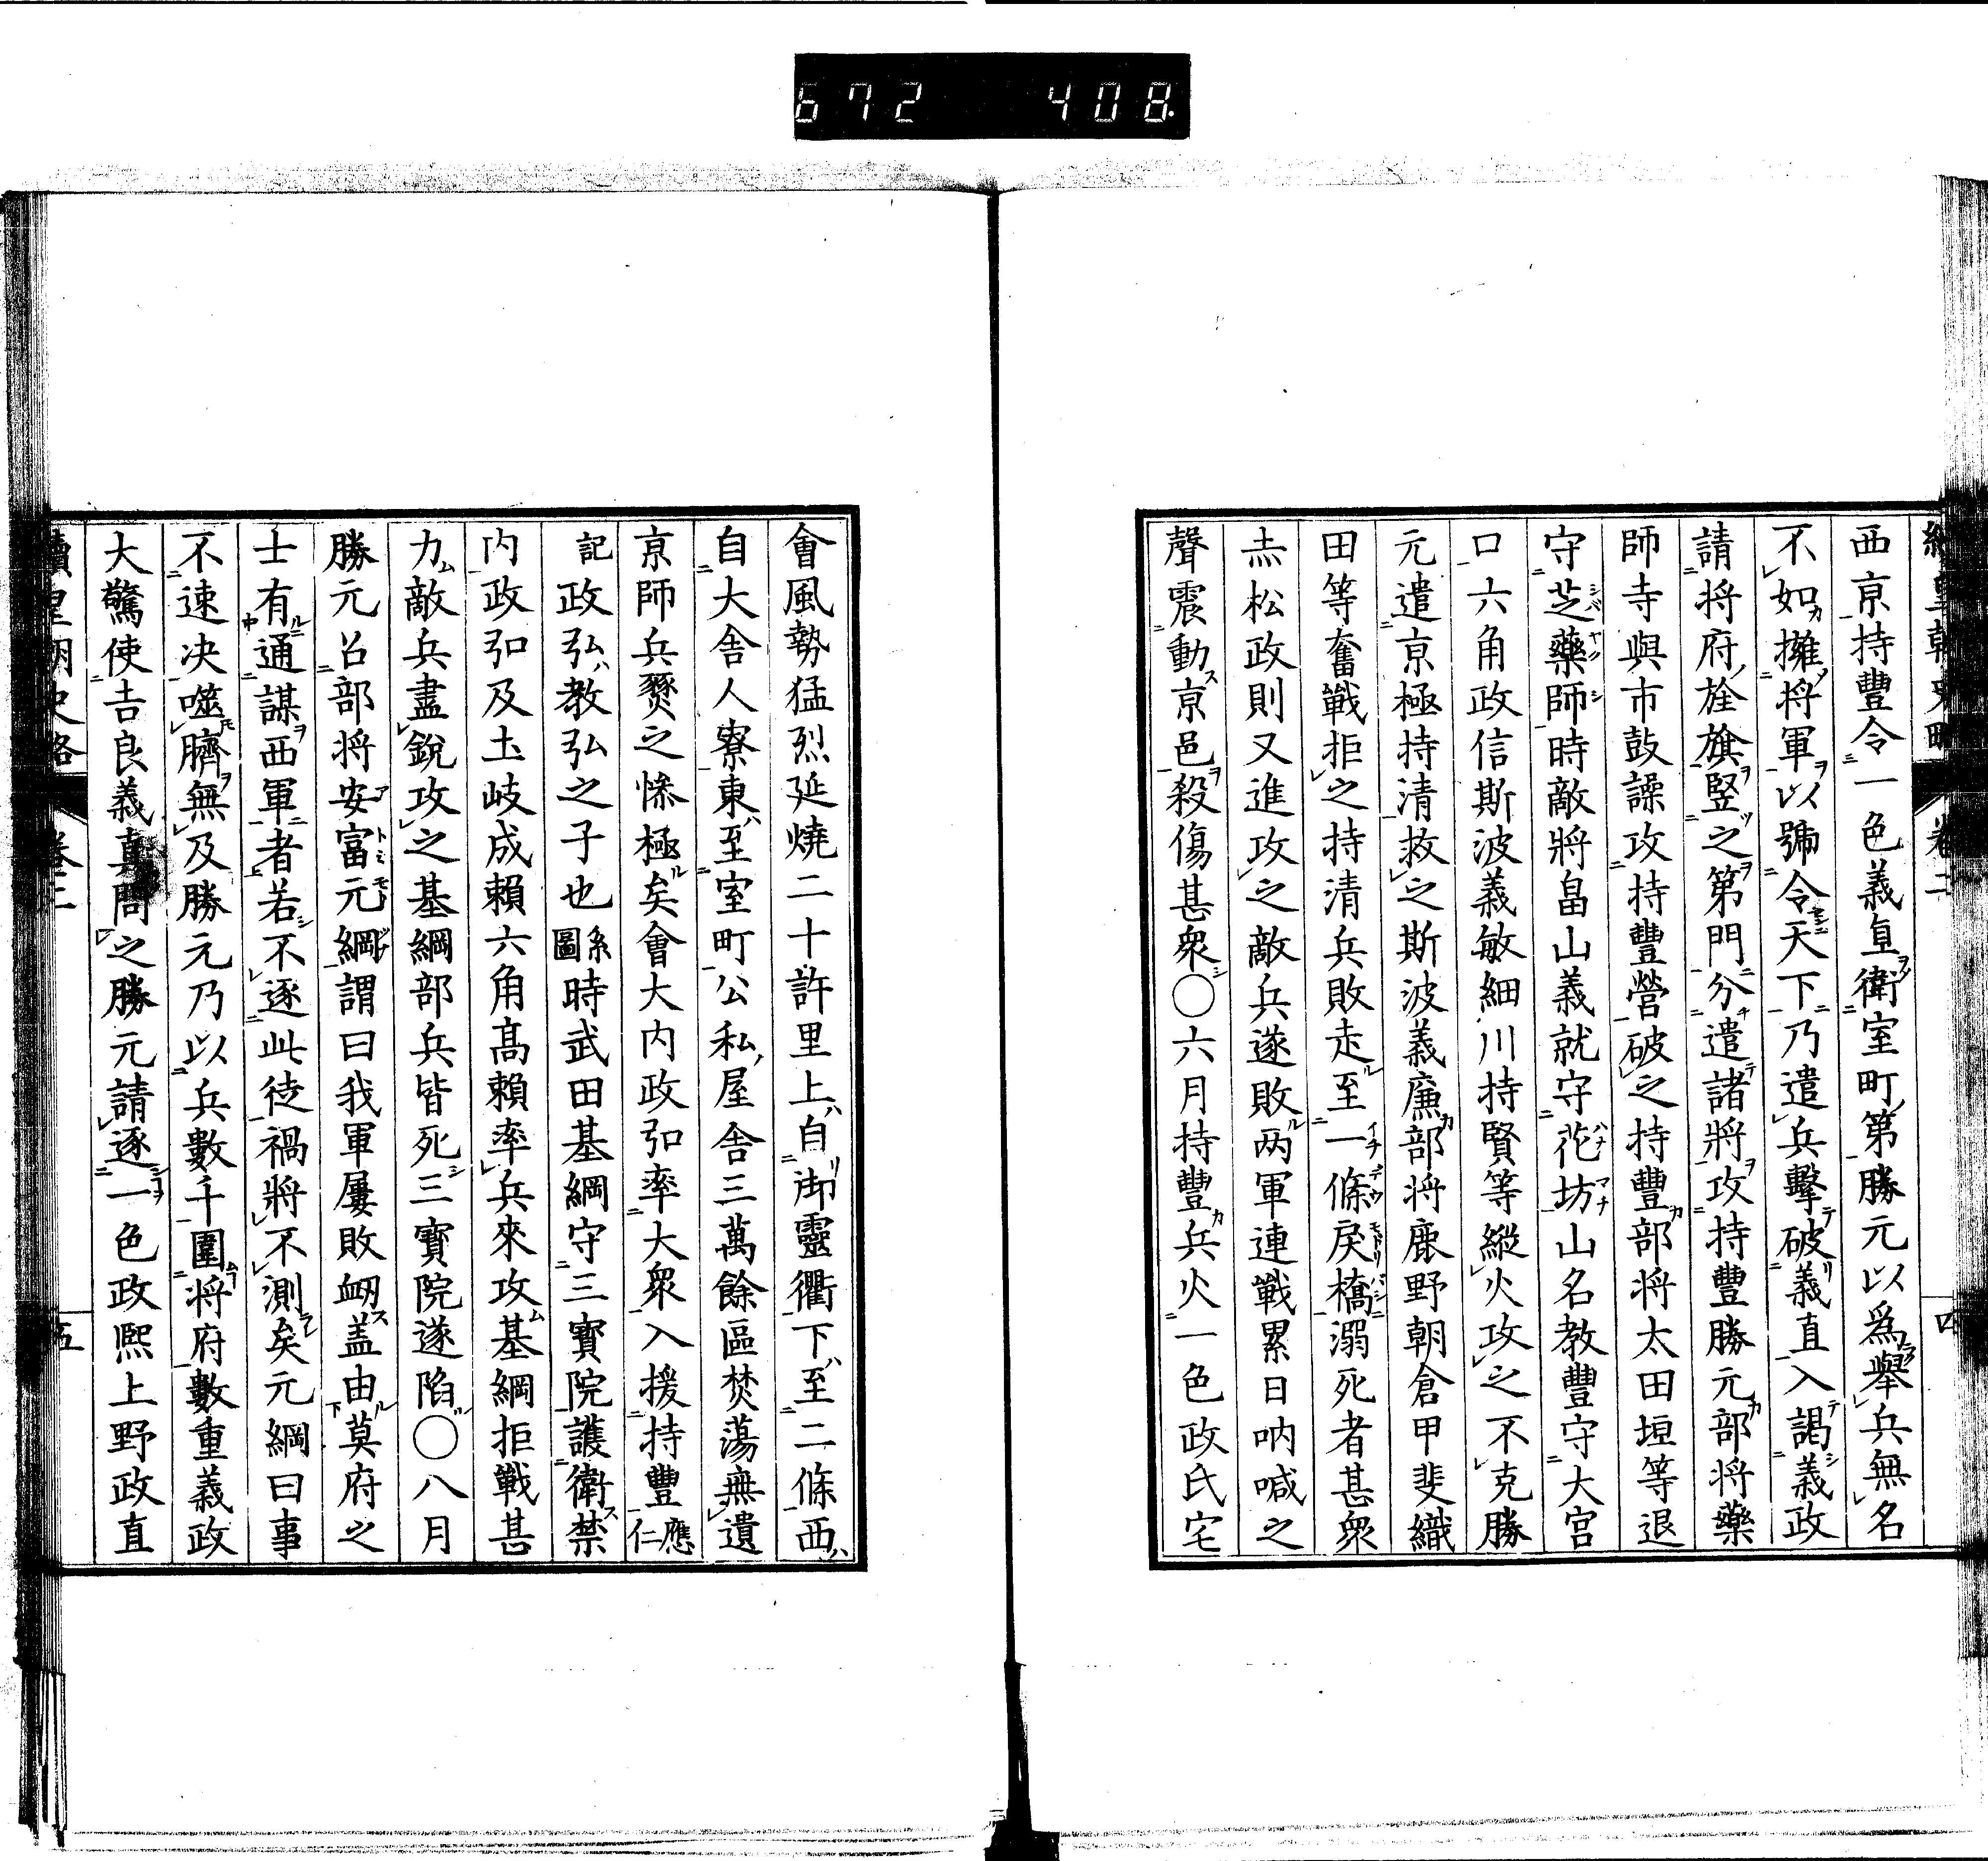 672 408
續皇朝史略 卷二 四
西京持豐令一色義直衛室町第勝元以爲舉兵無名
不如擁將軍以號令天下乃遣兵擊破義直入謁義政
請将府旌旗竪之第門分遣諸將攻持豐勝元部将藥
師寺與市鼓譟攻持豐營破之持豐部将太田垣等退
守芝藥師時敵將畠山義就守花坊山名教豐守大宮
口六角政信斯波義敏細川持賢等縱火攻之不克勝
元遣京極持清救之斯波義廉部将鹿野朝倉甲斐織
田等奮戰拒之持清兵敗走至一條戾橋溺死者甚衆
赤松政則又進攻之敵兵遂敗两軍連戰累日吶喊之
聲震動京邑殺傷甚衆〇六月持豐兵火一色政氏宅
會風勢猛烈延燒二十許里上自御靈衢下至二條西
自大舍人寮東至室町公私屋舍三萬餘區焚蕩無遺
京師兵燹之慘極矣會大内政弘率大衆入援持豐應仁
記政弘教弘之子也系圖時武田基綱守三寳院護衛禁
内政弘及土岐成賴六角高賴率兵來攻基綱拒戰甚
力敵兵盡銳攻之基綱部兵皆死三寳院遂陷〇八月
勝元召部将安富元綱謂曰我軍屢敗衂盖由莫府之
士有通謀西軍者若不逐此徒禍將不測矣元綱曰事
不速决噬臍無及勝元乃以兵數千圍将府數重義政
大驚使吉良義真問之勝元請逐一色政熙上野政直
續皇朝史略 卷二 五